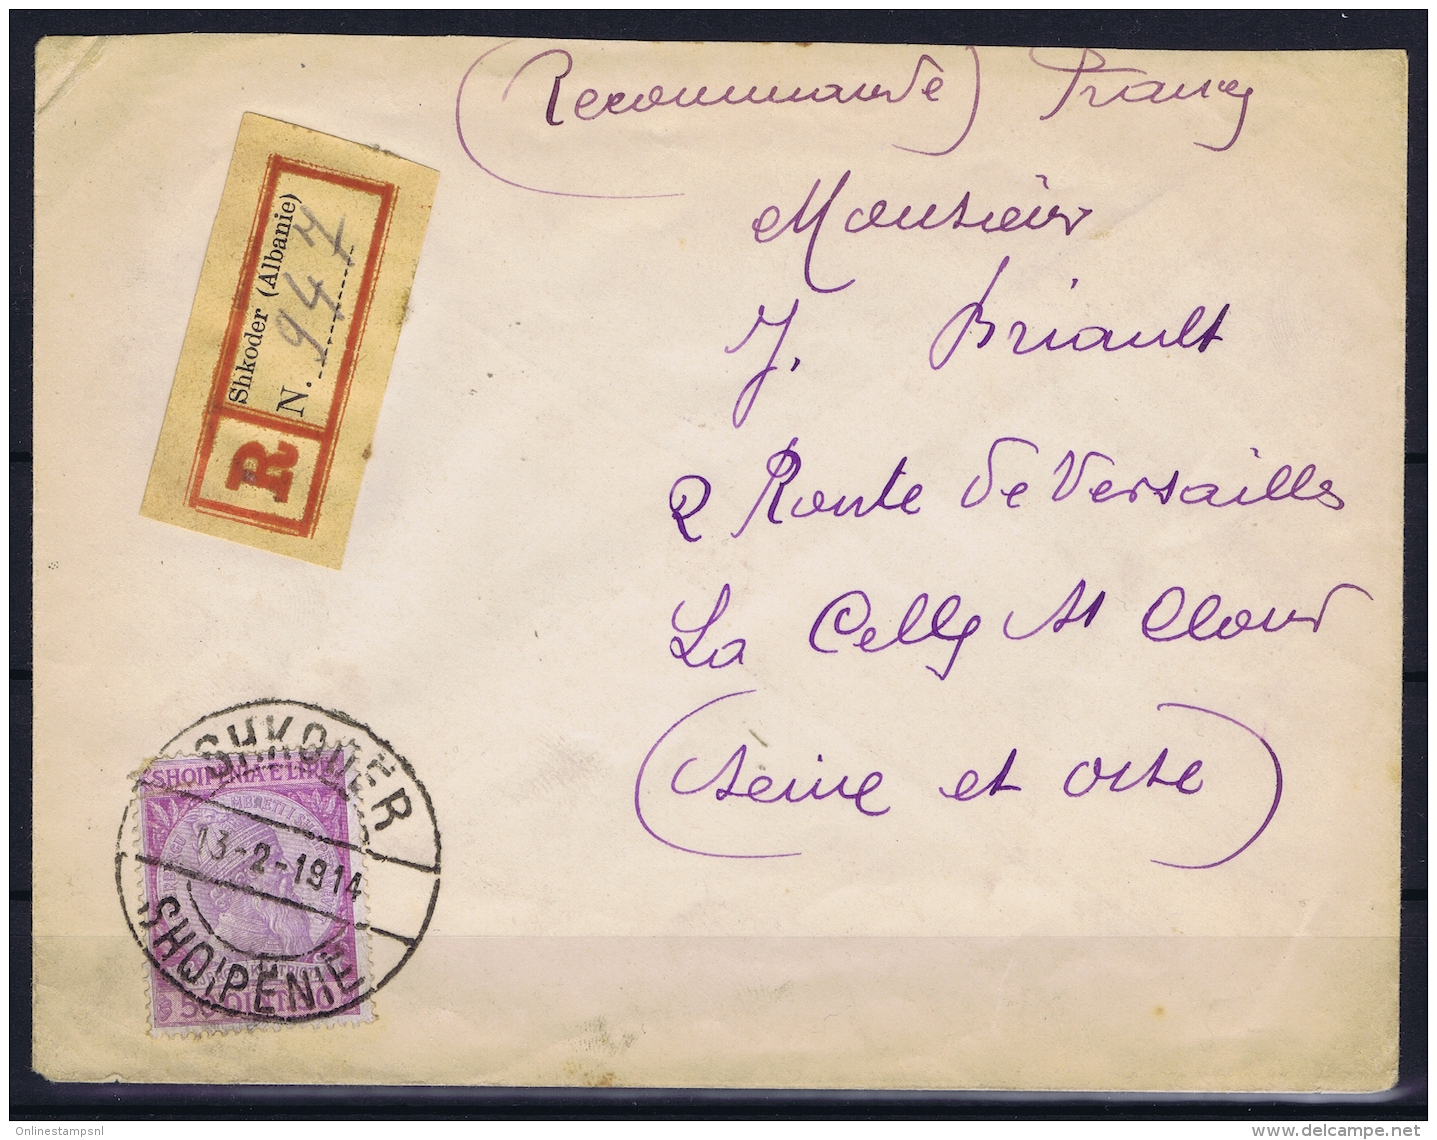 (Recommandé) France
Monsieur
J. Briault
2 Route de Versailles
La Celle St Cloud
(Seine et Oise)
Shkoder (Albanie)
N. 947
R
SHKODER
13-2-1914
SHQIPËNIE
SHQIPENIA E LIRE
50 QINTIND 50
Onlinestampsnl
delcampe.net